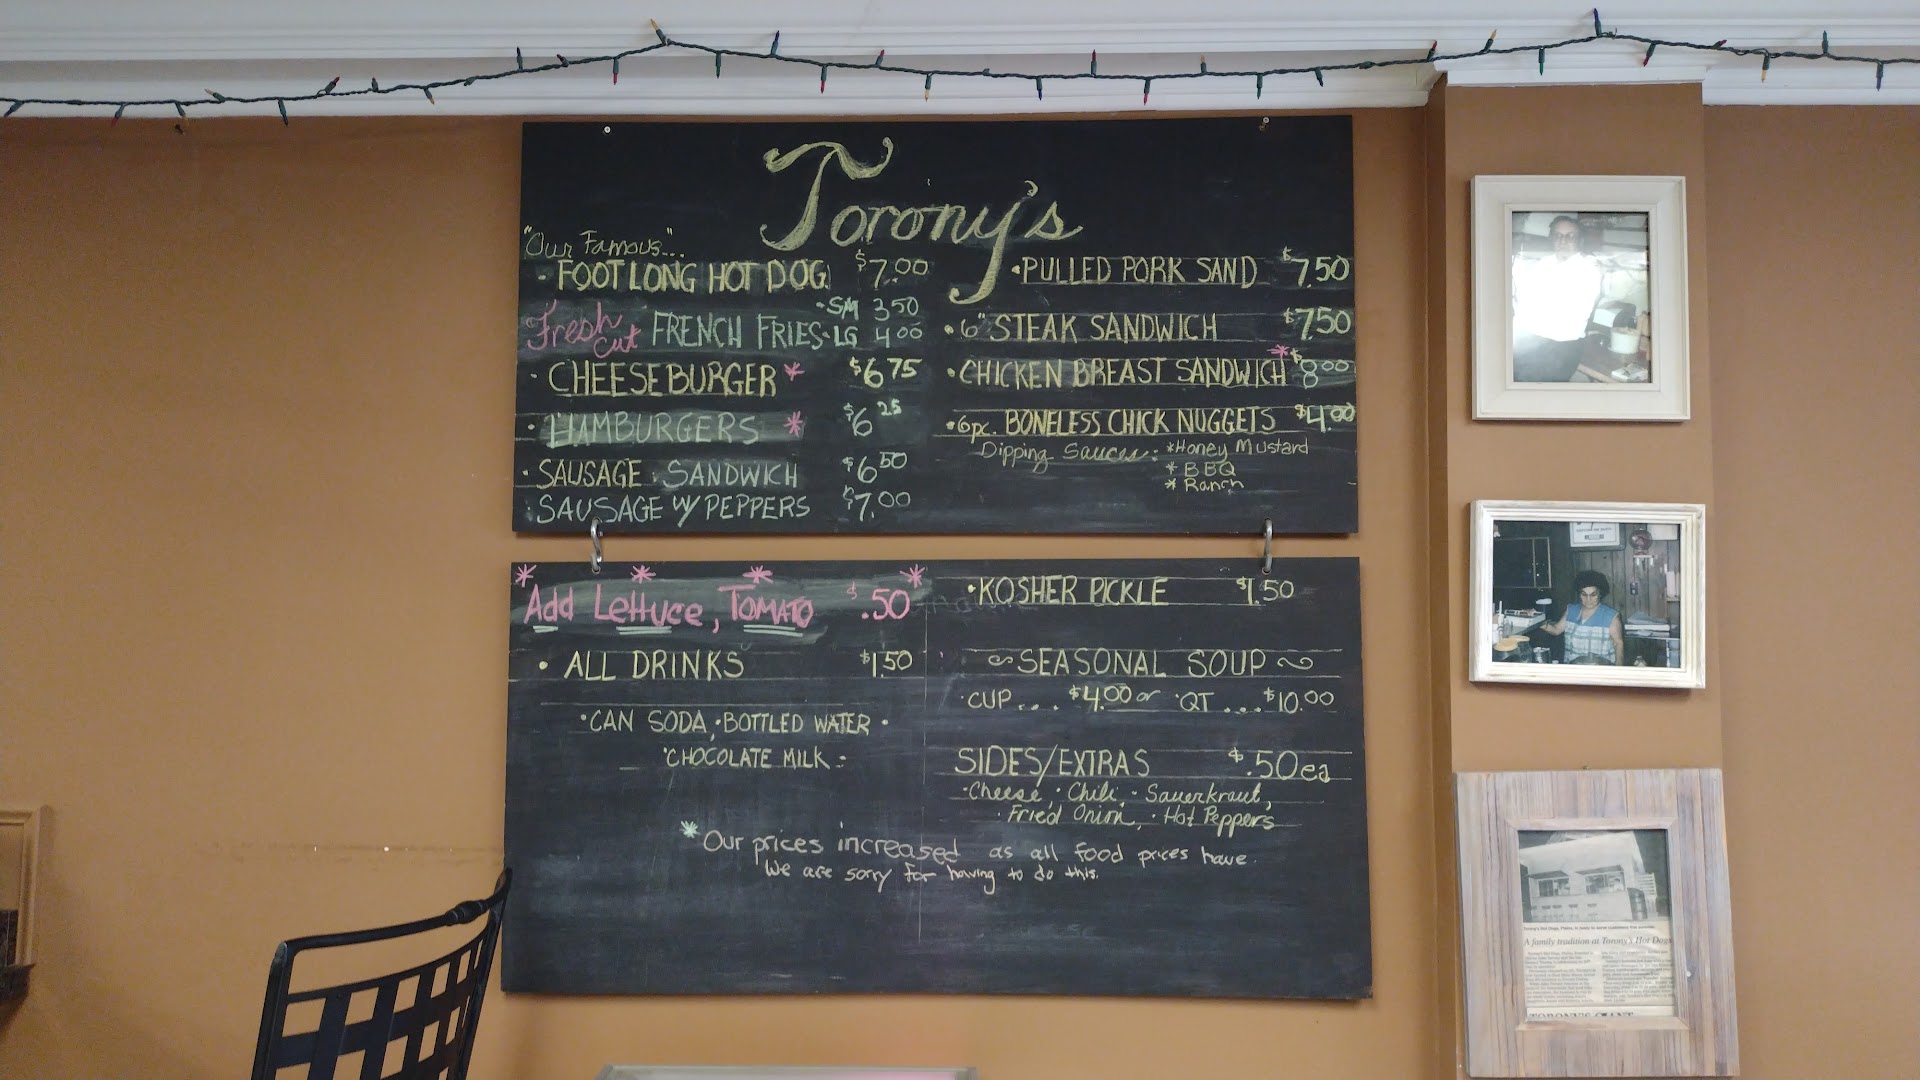 Torony's
"Our Famous"...
• FOOTLONG HOT DOG $7.00
Fresh cut FRENCH FRIES • SM 3.50
• LG 4.00
• CHEESEBURGER * $6.75
• HAMBURGERS * $6.25
• SAUSAGE SANDWICH $6.50
• SAUSAGE W/ PEPPERS $7.00
• PULLED PORK SAND $7.50
• 6" STEAK SANDWICH $7.50
• CHICKEN BREAST SANDWICH * $8.00
• 6pc. BONELESS CHICK NUGGETS $4.00
Dipping Sauces: * Honey Mustard
* BBQ
* Ranch
* * * *
Add Lettuce, TOMATO $.50
• ALL DRINKS $1.50
• CAN SODA, • BOTTLED WATER •
• CHOCOLATE MILK
• KOSHER PICKLE $1.50
~ SEASONAL SOUP ~
• CUP .... $4.00 or • QT .... $10.00
SIDES/EXTRAS $.50 ea
• Cheese, • Chili, • Sauerkraut,
• Fried Onion, • Hot Peppers
* Our prices increased as all food prices have.
We are sorry for having to do this.
A family tradition at Torony's Hot Dogs
TORONY'S GIANT